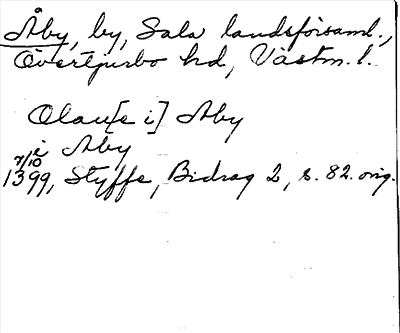 Åby, by, Sala landsförsaml.,
Övertjurbo hd, Västm. l.
Olau[e i] Aby
i Aby
7/10
1399, Styffe, Bidrag 2, s. 82. orig.